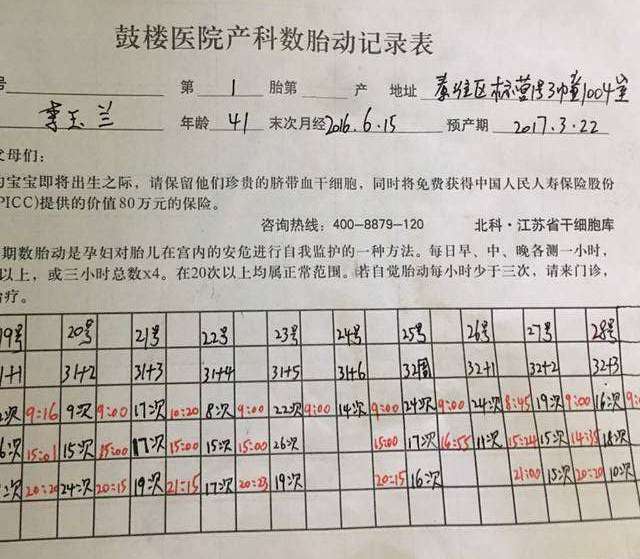 鼓楼医院产科数胎动记录表
号 第 1 胎第 产 地址 秦淮区标营1号3幢1004室
李玉兰 年龄 41 末次月经 2016.6.15 预产期 2017.3.22
父母们：
的宝宝即将出生之际，请保留他们珍贵的脐带血干细胞，同时将免费获得中国人民人寿保险股份
PICC)提供的价值80万元的保险。
咨询热线：400-8879-120 北科·江苏省干细胞库
期数胎动是孕妇对胎儿在宫内的安危进行自我监护的一种方法。每日早、中、晚各测一小时，
以上，或三小时总数x4。在20次以上均属正常范围。若自觉胎动每小时少于三次，请来门诊，
治疗。
19号 20号 21号 22号 23号 24号 25号 26号 27号 28号
31+1 31+2 31+3 31+4 31+5 31+6 32周 32+1 32+2 32+3
次 9:16 9次 9:00 17次 10:20 8次 9:00 22次 9:00 14次 9:00 24次 9:00 24次 8:45 19次 9:00 16次 9:0
6次 15:01 15次 15:00 17次 15:00 15次 15:00 26次 15:00 17次 16:55 11次 15:24 15次 14:35 18次
次 20:20 24次 20:15 19次 21:15 17次 20:23 19次 20:15 16次 21:00 15次 20:20 10次